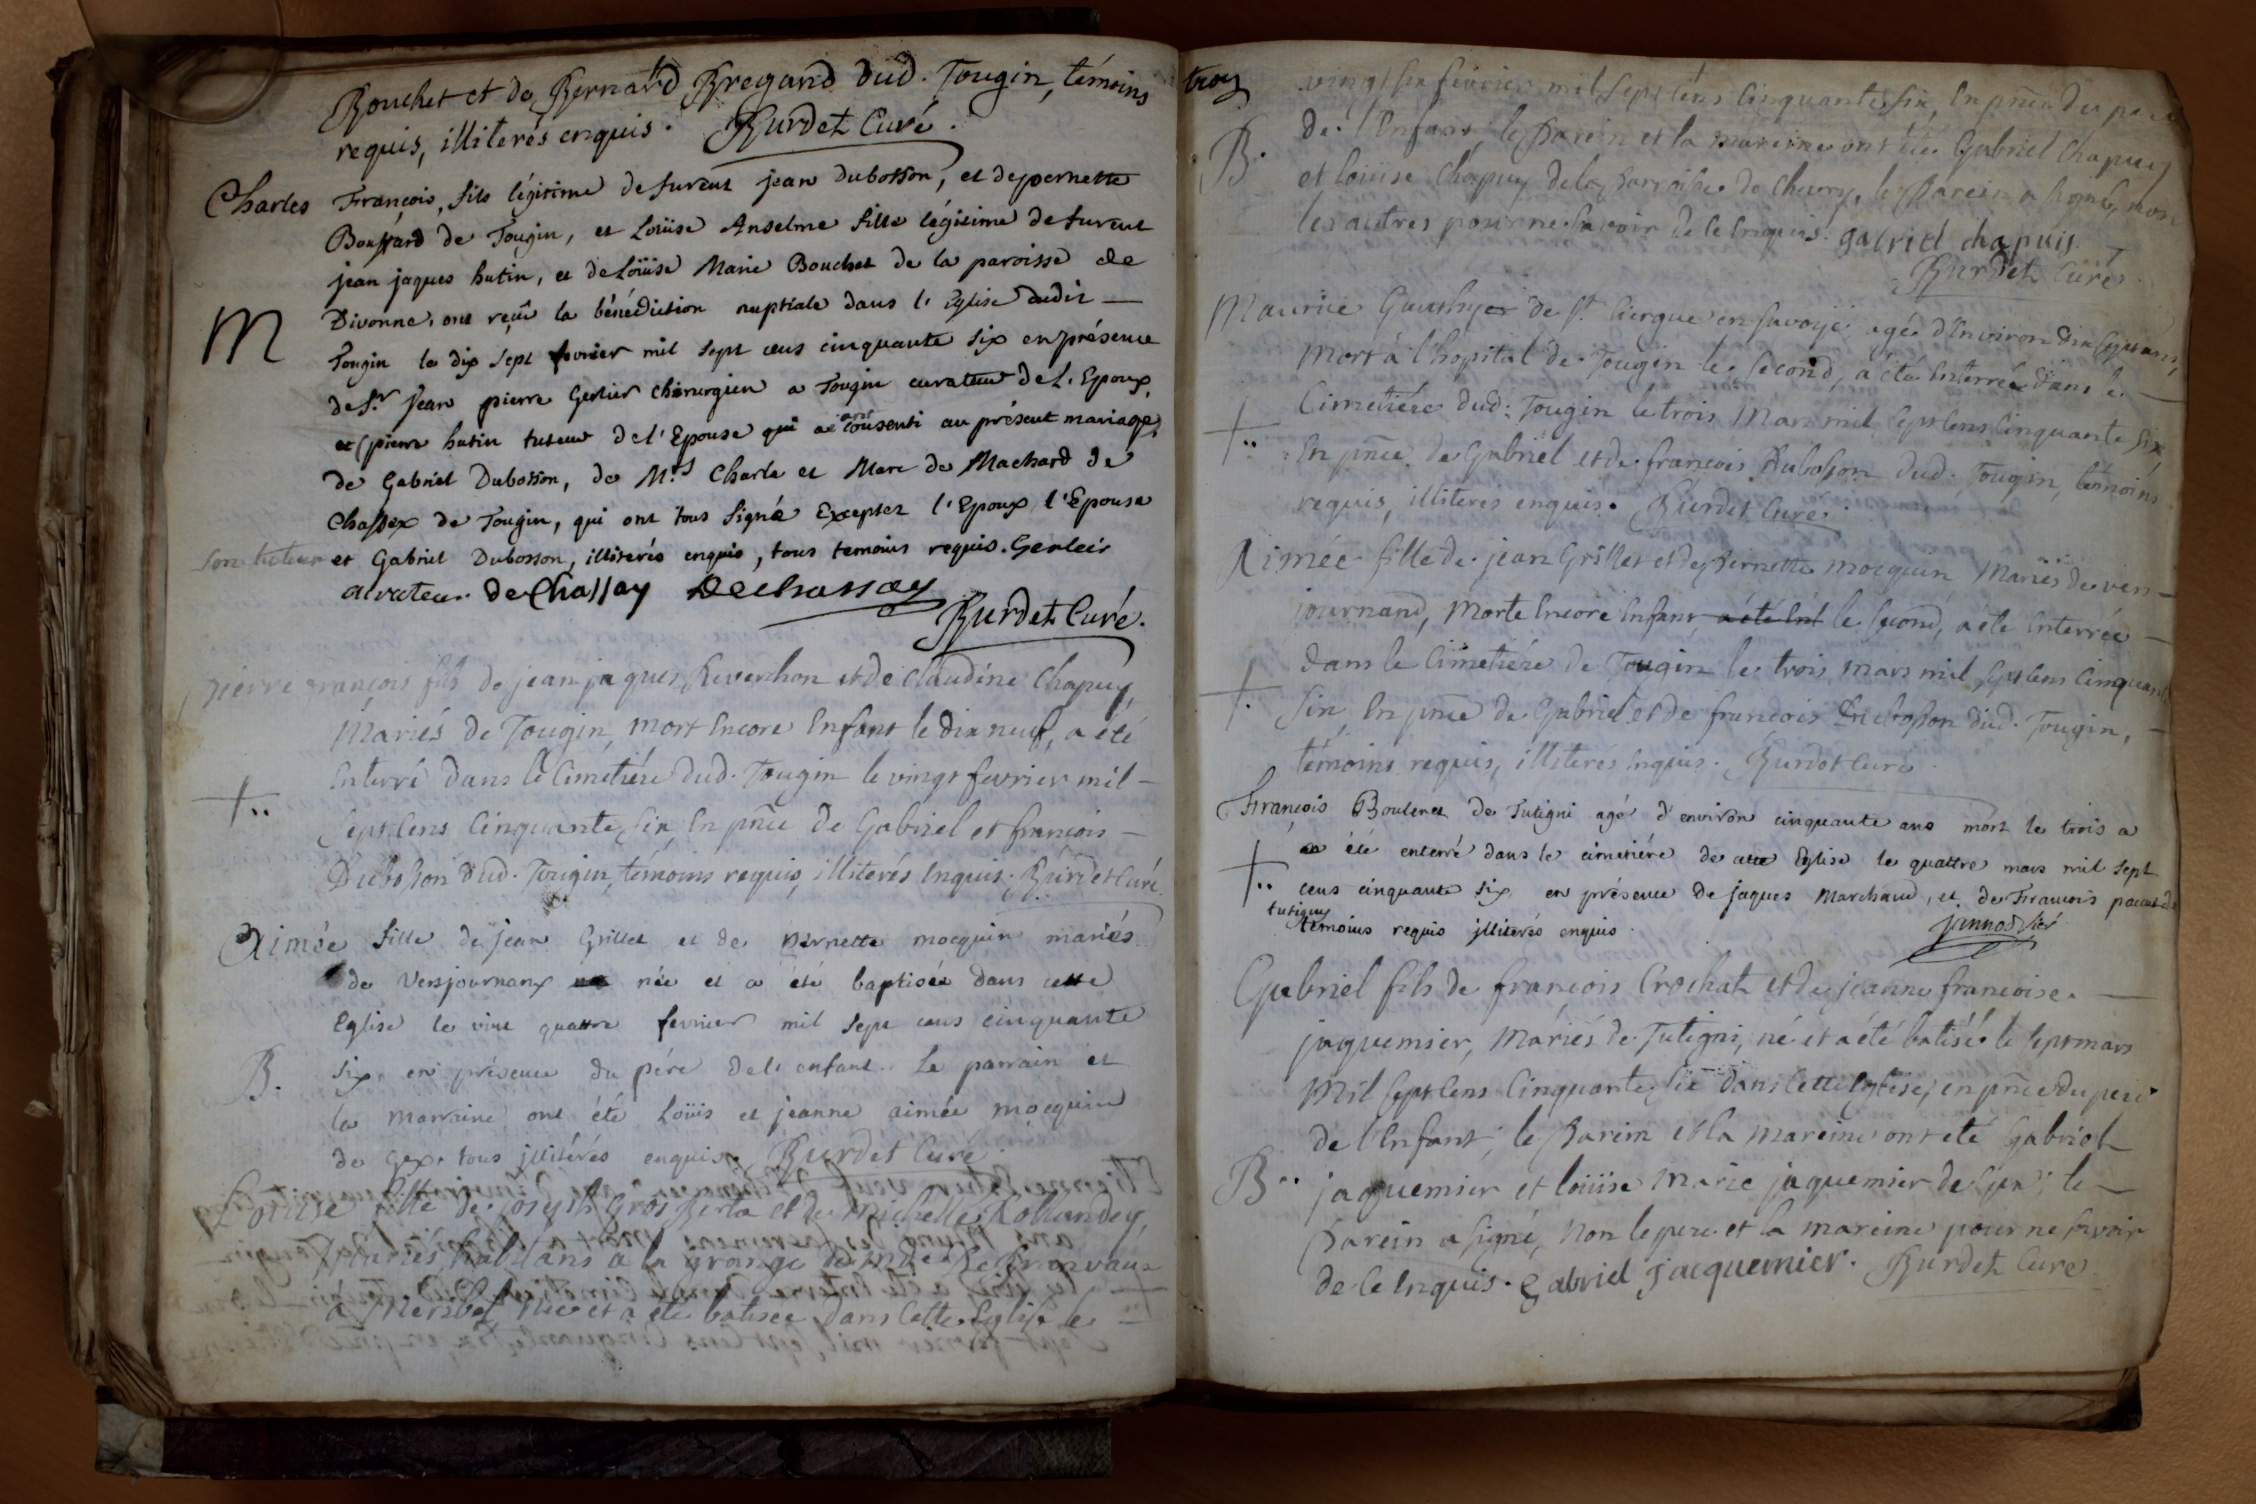 Bouchet et de Bernard Bregand dud. Tougin, témoins
requis, illiterés enquis. Burdet Curé.
Charles François, fils légitime de furent jean Dubosson, et de pernette
Boussard de Tougin, et Loüise Anselme fille légitime de furent
jean jaques hutin, et de Loüise Marie Bouchet de la paroisse de
Divonne, ont reçû la bénédiction nuptiale dans l'Eglise dudit
M
Tougin le dix sept fevrier mil sept cens cinquante six en présence
de Sr. jean pierre Gerlier Chirurgien a Tougin curateur de L'Epoux,
et pierre hutin tuteur de l'Epouse qui ont consenti au présent mariage,
de Gabriel Dubosson, de Mrs Charle et Marc de Machard de
Chassex de Tougin, qui ont tous signé Exceptez l'Epoux, l'Epouse
son tuteur et Gabriel Dubosson, illiterés enquis, tous temoins requis. Gerleir
curateur. de Chassay Dechassay
Burdet Curé.
pierre françois fils de jean jaques Reverchon et de Claudine Chapuy,
Mariés de Tougin, mort encore Enfant le dix neuf, a été
Enterré dans le Cimetiére dud. Tougin le vingt fevrier mil
+..
sept cens Cinquante six En pnce de Gabriel et françois
Dubosson dud. Tougin, témoins requis, illiterés Enquis. Burdet Curé
Aimée fille de jean Grillet et de pernette mocquin mariés
de Versjournanx née et a été baptisée dans cette
Eglise le vint quattre fevrier mil sept cens cinquante
B.
six, en présence du pére de l'enfant. Le parrain et
la marraine ont été Loüis et jeanne aimée mocquin
de Gex. tous jllitérés enquis. Burdet Curé
Loüise fille de Joseph Gros et de Michelle
Mariés, habitans a la grange de
a née et a été batisée dans Cette Eglise le
troy
vingt six fevrier mil sept cens Cinquante six, En pnce du pere
B.
de l'Enfant, le Parein et la mareine ont été Gabriel Chapuy
et loüise Chapuy de la parroisse de Chevry, le parein a signé, non
les autres pour ne savoir de ce Enquis. gabriel chapuis
Burdet Curé
Maurice Gauthyer de St. Cierque en Savoye agé d'Environ dix sept ans,
Mort à l'hopital de Tougin le second, a été Enterré dans le
Cimetiére dud. Tougin le trois Mars mil sept cens Cinquante six
+..
En pnce de Gabriel et de françois Dubosson dud. Tougin, témoins
requis, illiterés enquis. Burdet Curé.
Aimée fille de jean Grillet et de pernette mocquin Mariés de vers
journand, Morte Encore Enfant a été Ent le second, a été Enterrée
dans le Cimetiére de Tougin le trois mars mil sept cens Cinquante
+.
six En pnce de Gabriel et de françois Dubosson dud. Tougin,
témoins requis, illiterés Enquis. Burdet Curé
François Boulenet de Tutigni agé d'environ cinquante ans mort le trois a
été enterré dans le cimetiére de cette Eglise le quattre mars mil sept
+..
cens cinquante six en présence de jaques Marchand, et de François
tutigny
témoins requis jllitérés enquis. jannod vicr
Gabriel fils de françois Crochat et de jeanne françoise
jaquemier, Mariés de Tutigni, né et a été batisé le sept mars
Mil sept cens Cinquante six dans Cette Eglise, en pnce du pere
de l'Enfant, le Parein et la mareine ont été Gabriel
B..
jaquemier et loüise Marie jaquemier de Gex, le
Parein a signé, Non le pere et la mareine pour ne savoir
de ce Enquis. gabriel jacquemier. Burdet Curé